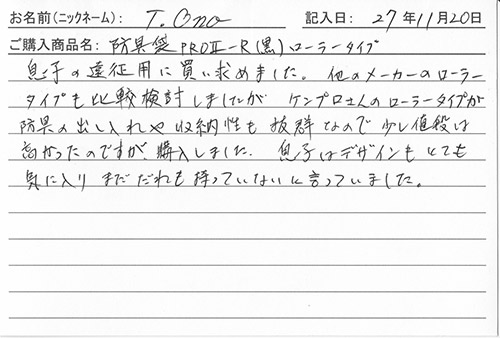 お名前(ニックネーム): T. Ono 記入日: 27年11月20日
ご購入商品名: 防具袋 PROⅡ-R(黒)ローラータイプ
息子の遠征用に買い求めました。他のメーカーのローラー
タイプも比較検討しましたが ケンプロさんのローラータイプが
防具の出し入れや収納性も抜群なので少し値段は
高かったのですが、購入しました。息子はデザインもとても
気に入り まだだれも持っていないと言っていました。